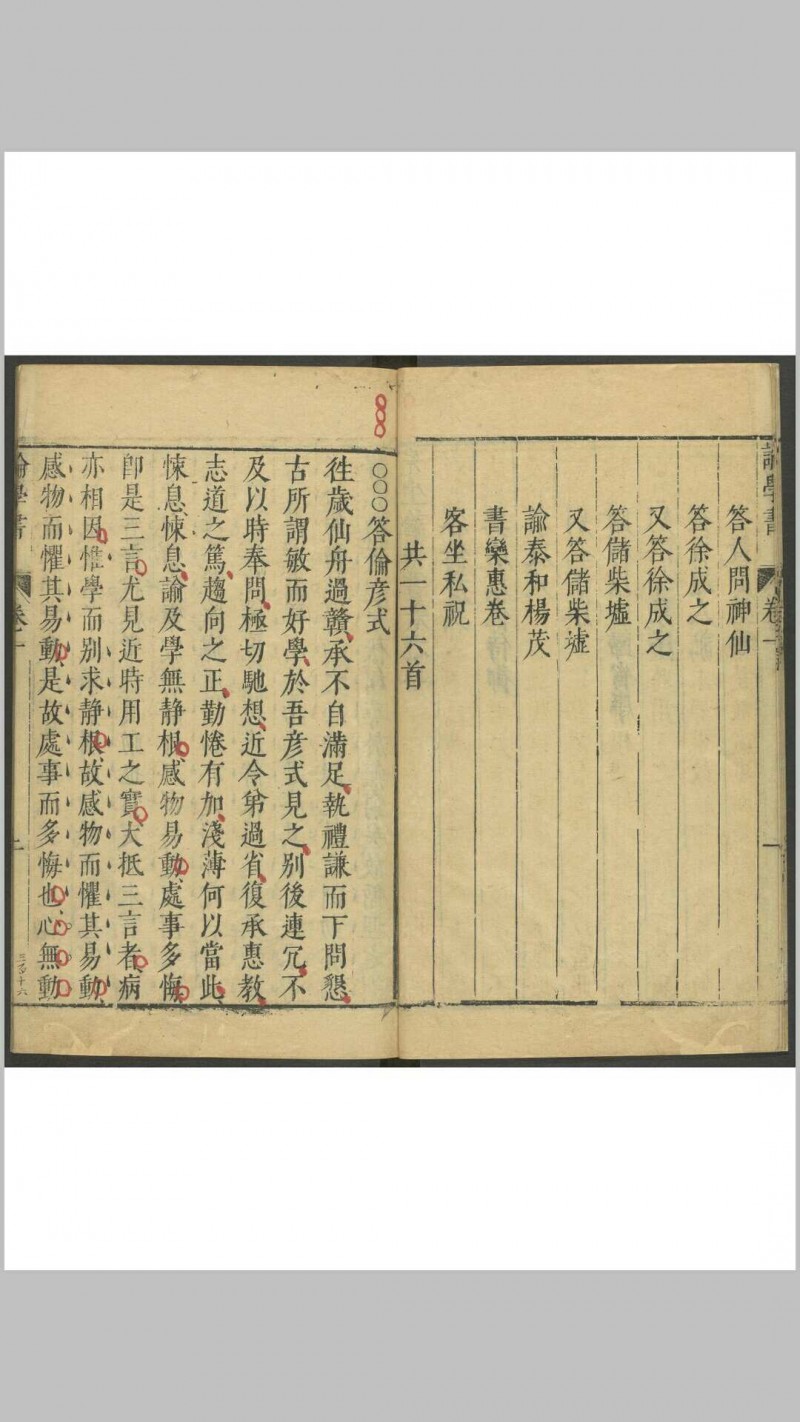 論學書 卷一 一
答人問神仙
答徐成之
又答徐成之
答儲柴墟
又答儲柴墟
諭泰和楊茂
書欒惠卷
客坐私祝
共一十六首
○○○答倫彥式
徃歲仙舟過贛承不自滿足執禮謙而下問懇
古所謂敏而好學於吾彥式見之别後連冗不
及以時奉問極切馳想近令弟過省復承惠教
志道之篤趨向之正勤惓有加淺薄何以當此
悚息悚息諭及學無静根感物易動處事多悔
卽是三言尤見近時用工之實大抵三言者病
亦相因惟學而别求静根故感物而懼其易動
感物而懼其易動是故處事而多悔也心無動
論學書 卷一